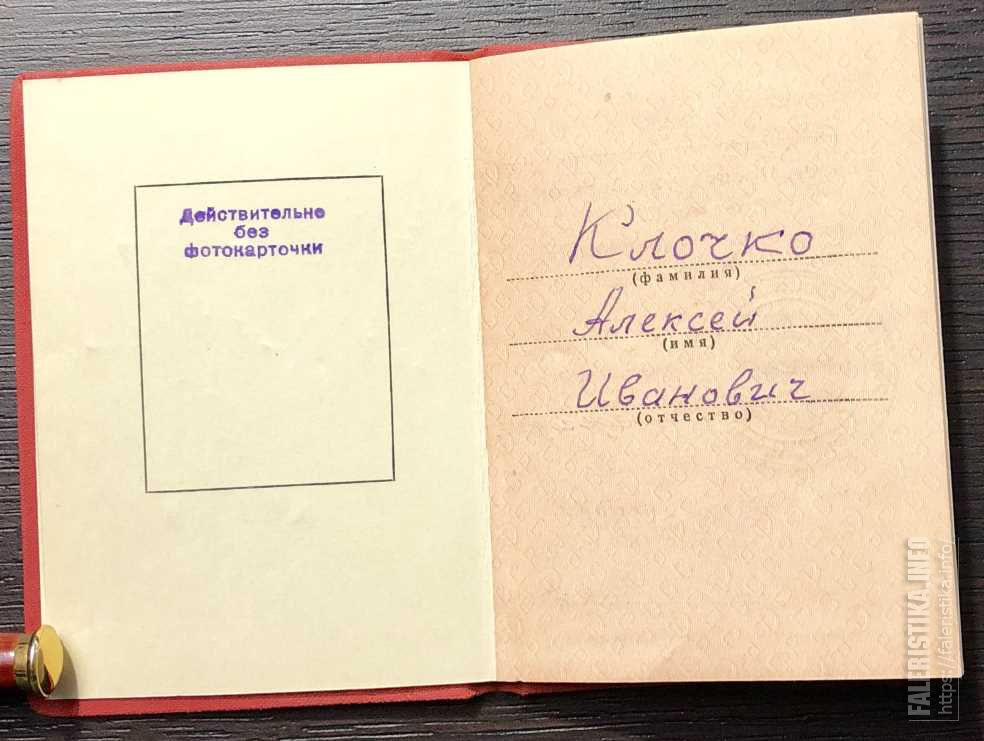 Действительно
без
фотокарточки
Клочко
(фамилия)
Алексей
(имя)
Иванович
(отчество)
FALERISTIKA.INFO
https://faleristika.info/